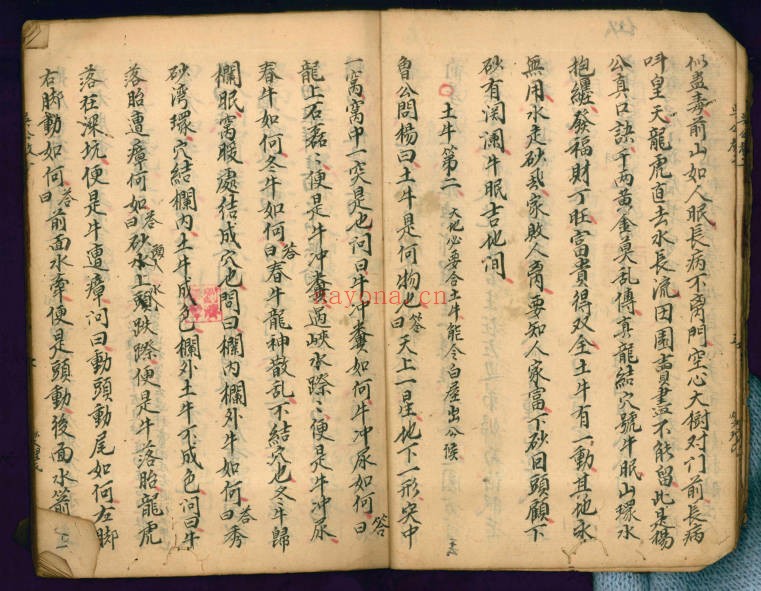 似蠱毒前山如人眠長病不离門空心大樹对门前長病
叫皇天龍虎直去水長流田園賣盡不能留此是楊
公真口訣千両黄金莫乱傳真龍結穴號牛眠山環水
抱纏發福財丁旺富貴得双全土牛有一動其地永
無用水走砂飛家敗人离要知人家富下砂回頭顧下
砂有闌牛眠吉地间
土牛第二 大地必要合土牛能令白屋出公候
魯公問楊曰土牛是何物也答曰天上一星地下一形突中
一窩窩中一突是也问曰牛冲糞如何牛冲尿如何答曰
龍上石磊〻便是牛冲糞過峽水際〻便是牛冲尿
春牛如何冬牛如何答曰春牛龍神散乱不結穴也冬牛歸
欄眠窩暖處結成穴也問曰欄内欄外牛如何答曰秀
砂湾環穴結欄内土牛成色欄外土牛不成色问曰牛
落胎遭瘴何如答曰砂水上頭跌際便是牛落胎龍虎
落在深坑便是牛遭瘴问曰動頭動尾如何左脚
右脚動如何答曰前面水牽便是頭動後面水箭
kayona.cn